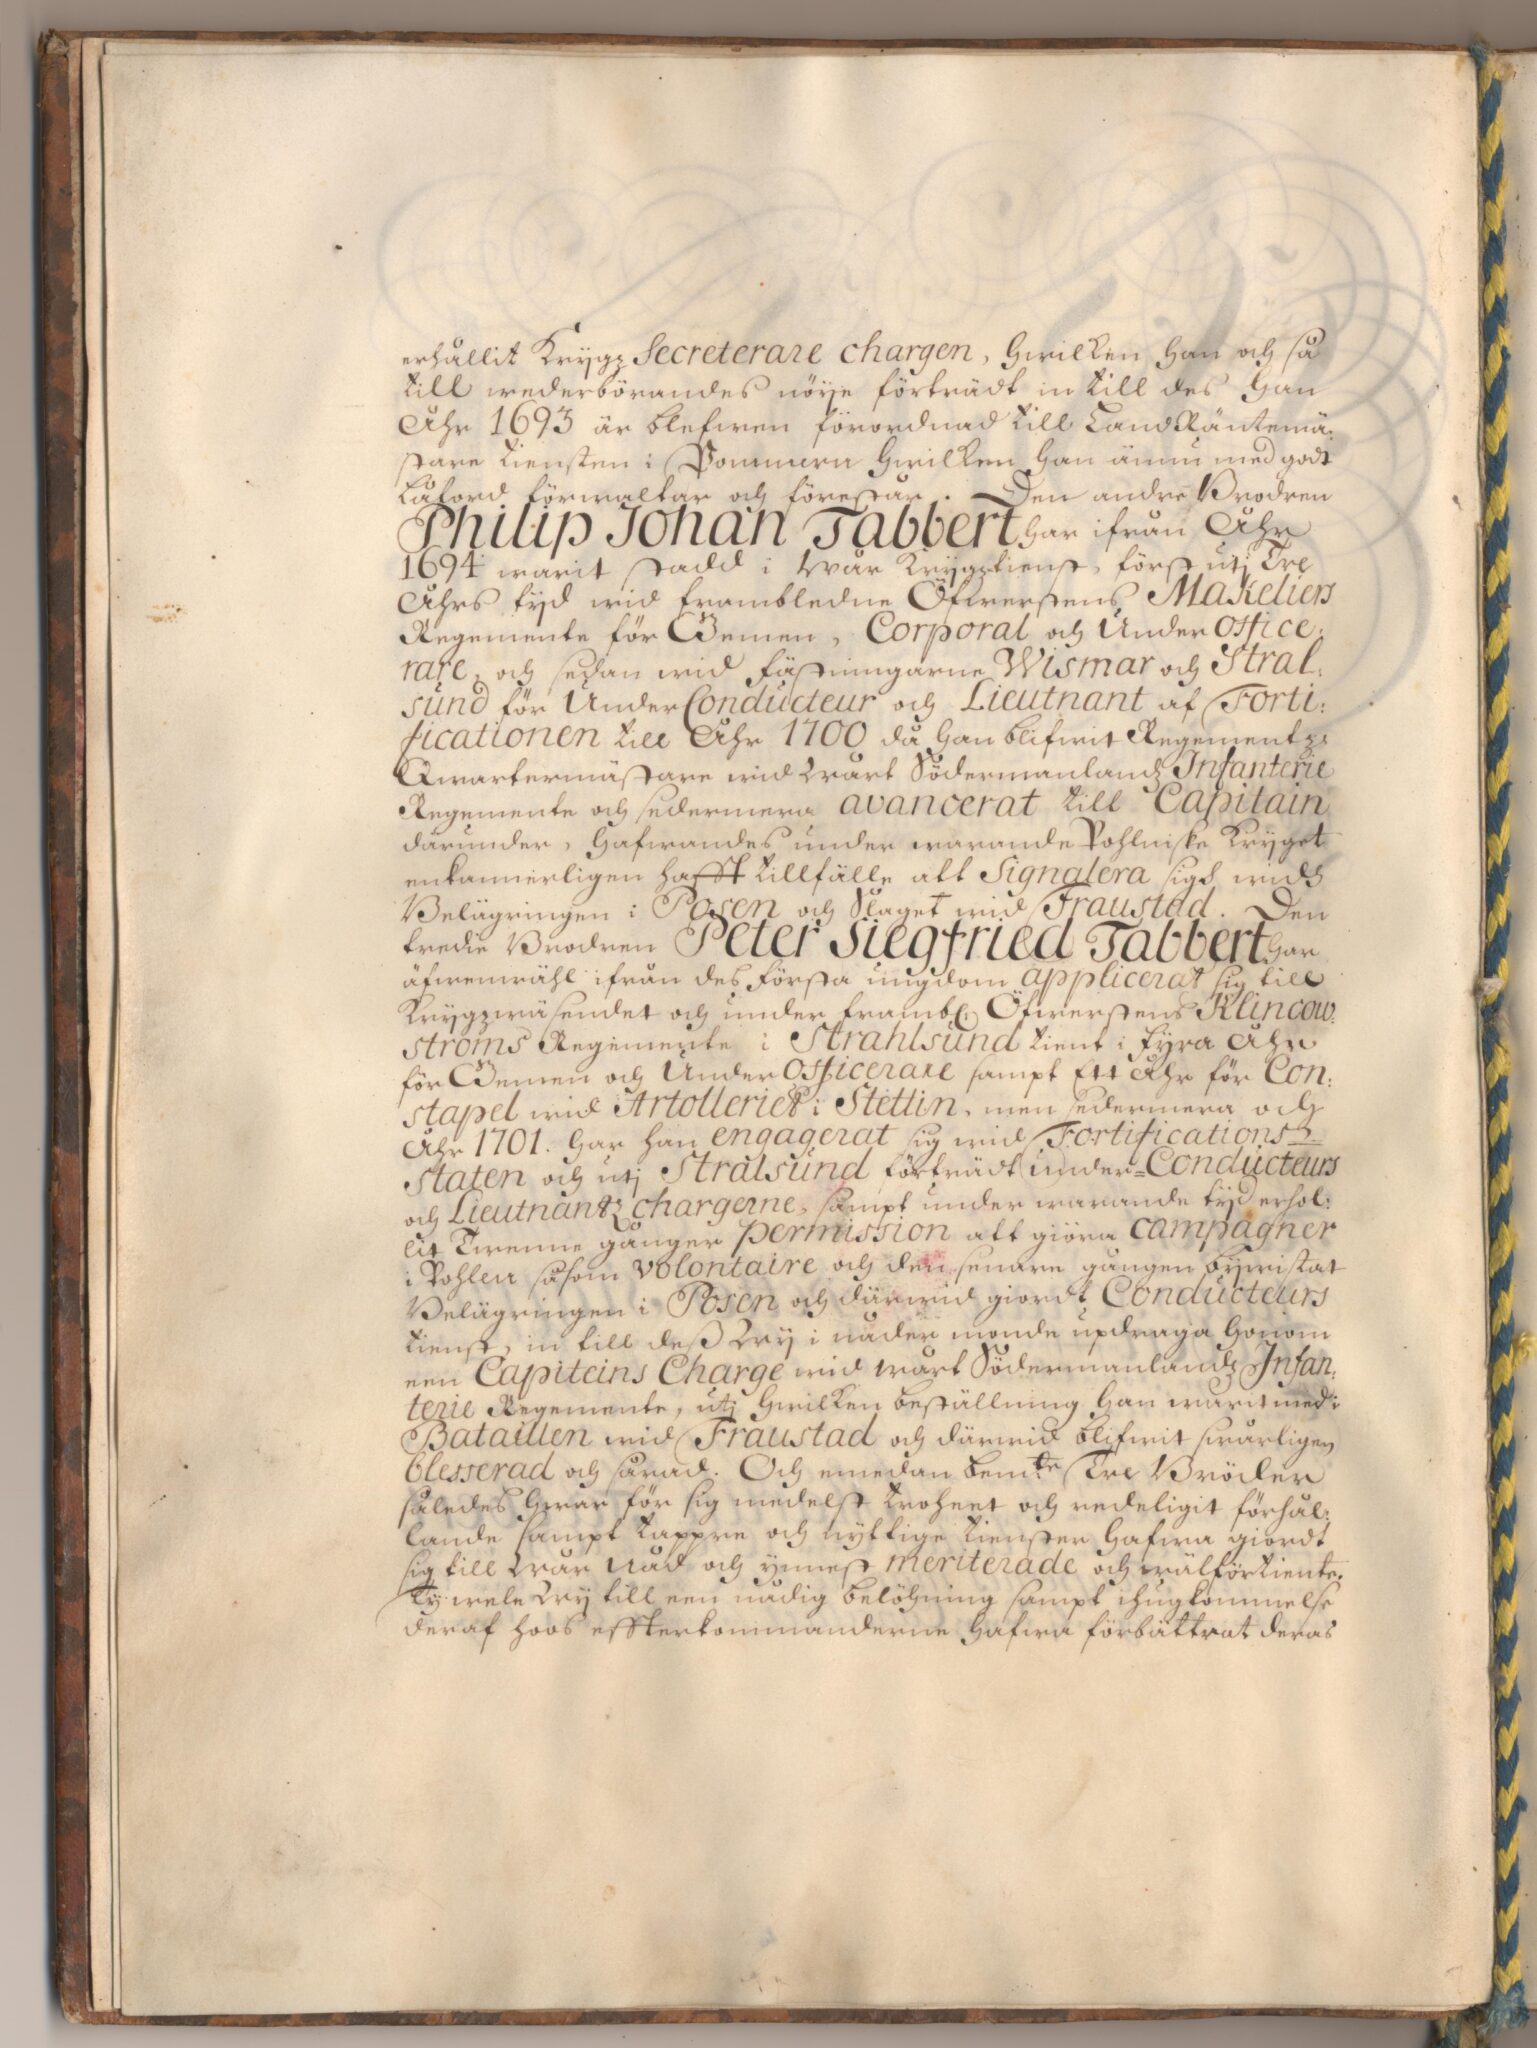 erhållit Krygz Secreterare chargen, hwilken han och så
till wederbörandes nöije förträdt in till des han
Åhr 1693 är blefwen förordnad till LandRäntemä:
stare tiensten i Pommern hwilken han ännu med godt
Låford förwaltar och förestår. Den andre Brodren
Philip Johan Tabbert har ifrån Åhr
1694 warit stadd i wår Krygztienst, först utj Tre
Åhrs tijd wid frambledne Öfwerstens Makeliers
Regemente för Gemen, Corporal och Under office:
rare, och sedan wid fästningarne Wismar och Stral:
sund för Under Conducteur och Lieutnant af Forti:
ficationen till Åhr 1700 då han blifwit Regementz
Qwartermästare wid wårt Södermanlandz Infanterie
Regemente och sedermera avancerat till Capitain
därunder, hafwandes under warande Pohlniske Kryget
enkannerligen hafft tillfälle att Signalera sigh widh
Belägringen i Posen och Slaget wid Fraustad. Den
tredie Brodren Peter Siegfried Tabbert har
äfwenwähl ifrån des första ungdom applicerat sig till
Krygzwäsendet och under frambl. Öfwerstens Klincow:
ströms Regemente i Strahlsund tient i fyra Åhr
för Gemen och Under Officerare sampt Ett Åhr för Con:
stapel wid Artolleriet i Stettin, men sedermera och
Åhr 1701. har han engagerat sig wid Fortifications
staten och utj Stralsund förträdt under=Conducteurs
och Lieutnantz chargerne, sampt under warande tijd erhol:
lit Twenne gånger permission att giöra campagner
i Pohlen såsom volontaire och den senare gången bijwistat
Belägringen i Posen och därwid giordt Conducteurs
tienst, in till deß Wy i nåder monde updraga honom
een Capiteins Charge wid wårt Södermanlandz Infan:
terie Regemente, utj hwilken beställning han warit med i
Bataillen wid Fraustad och därwid blifwit swårligen
blesserad och sårad. Och emedan bem:te Tre Bröder
således hwar för sig medelst troheet och redeligit förhål:
lande sampt tappre och nyttige tienster hafwa giordt
sig till Wår Nåd och ynnest meriterade och wälförtiente.
Ty wele Wy till een nådig belöhning sampt ihugkommelse
deraf hoos effterkommanderne hafwa förbättrat deras